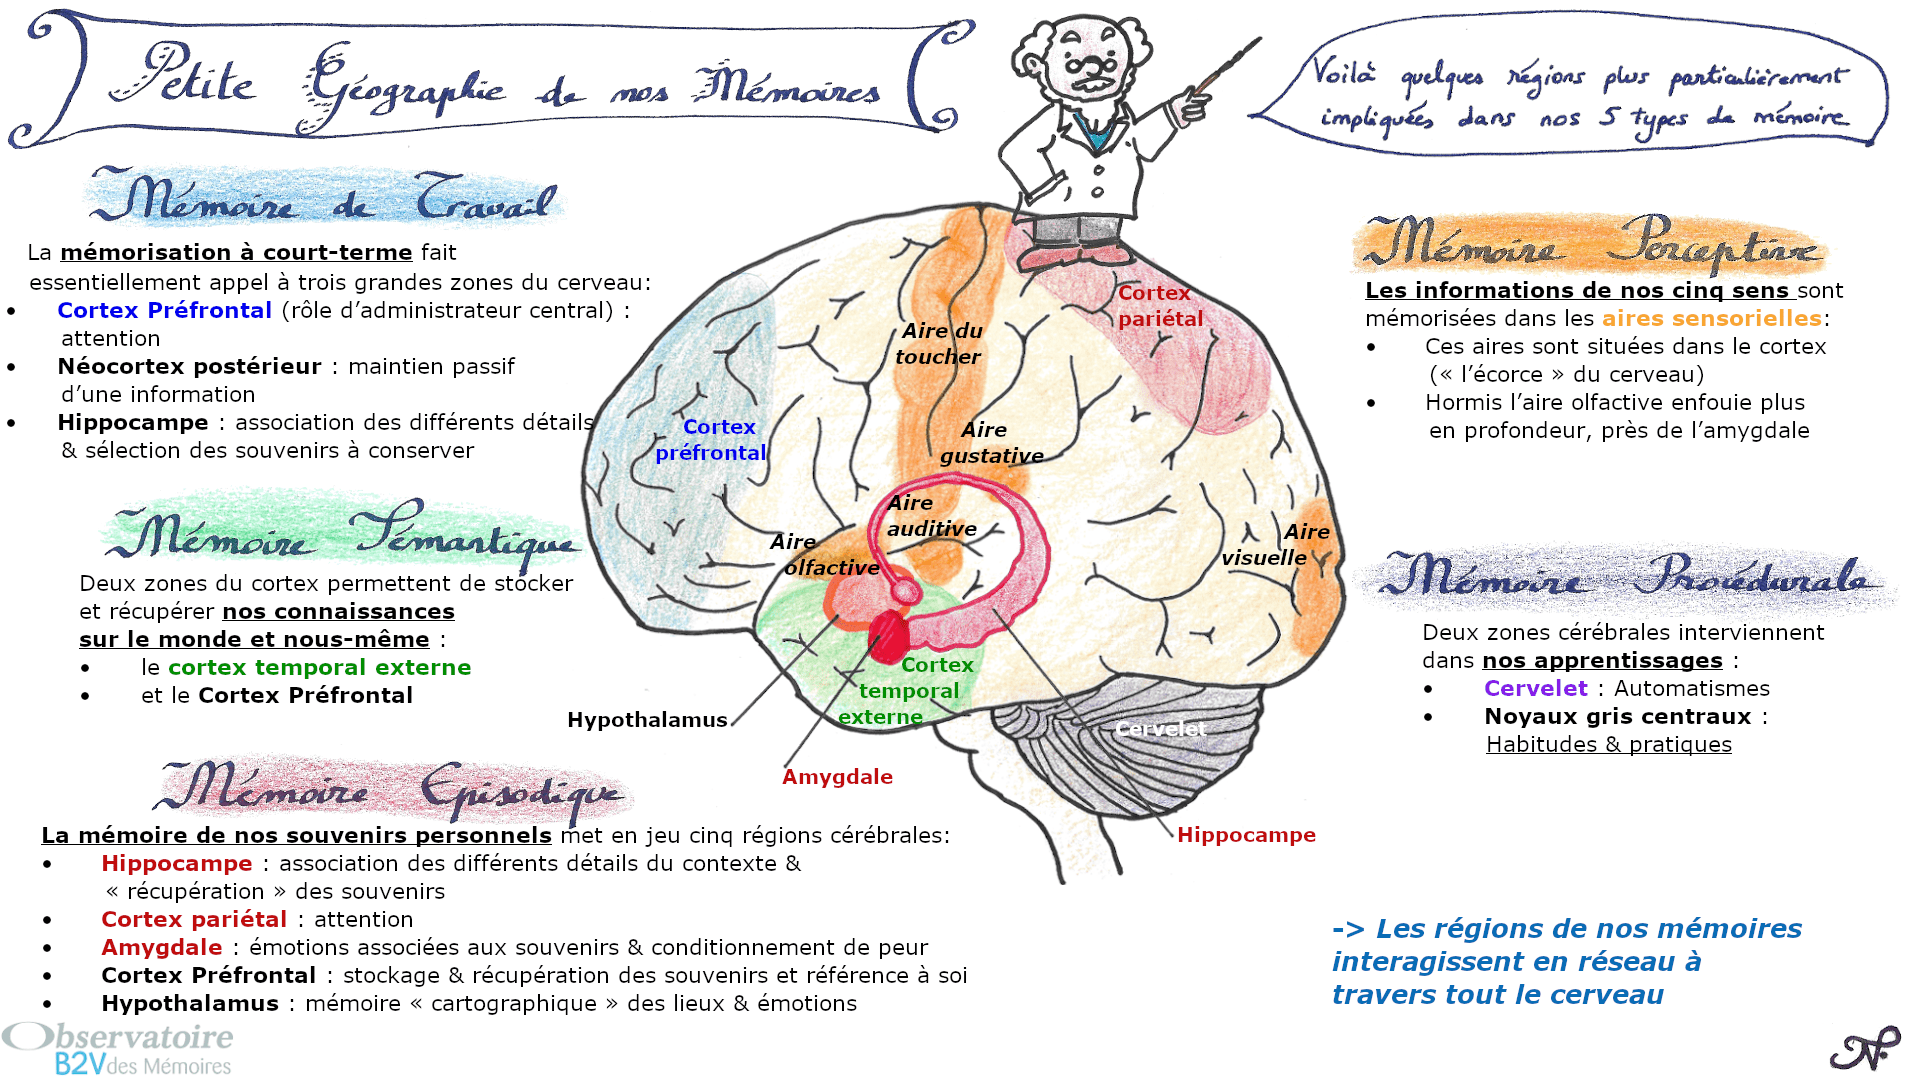 Petite Géographie de nos Mémoires
Voilà quelques régions plus particulièrement
impliquées dans nos 5 types de mémoire
Mémoire de Travail
La mémorisation à court-terme fait
essentiellement appel à trois grandes zones du cerveau:
• Cortex Préfrontal (rôle d’administrateur central) :
attention
• Néocortex postérieur : maintien passif
d’une information
• Hippocampe : association des différents détails
& sélection des souvenirs à conserver
Mémoire Sémantique
Deux zones du cortex permettent de stocker
et récupérer nos connaissances
sur le monde et nous-même :
• le cortex temporal externe
• et le Cortex Préfrontal
Mémoire Episodique
La mémoire de nos souvenirs personnels met en jeu cinq régions cérébrales:
• Hippocampe : association des différents détails du contexte &
« récupération » des souvenirs
• Cortex pariétal : attention
• Amygdale : émotions associées aux souvenirs & conditionnement de peur
• Cortex Préfrontal : stockage & récupération des souvenirs et référence à soi
• Hypothalamus : mémoire « cartographique » des lieux & émotions
Cortex
pariétal
Aire du
toucher
Cortex
préfrontal
Aire
gustative
Aire
auditive
Aire
olfactive
Aire
visuelle
Cortex
temporal
externe
Hypothalamus
Cervelet
Amygdale
Hippocampe
Mémoire Perceptive
Les informations de nos cinq sens sont
mémorisées dans les aires sensorielles:
• Ces aires sont situées dans le cortex
(« l’écorce » du cerveau)
• Hormis l’aire olfactive enfouie plus
en profondeur, près de l’amygdale
Mémoire Procédurale
Deux zones cérébrales interviennent
dans nos apprentissages :
• Cervelet : Automatismes
• Noyaux gris centraux :
Habitudes & pratiques
-> Les régions de nos mémoires
interagissent en réseau à
travers tout le cerveau
Observatoire
B2V des Mémoires
N.